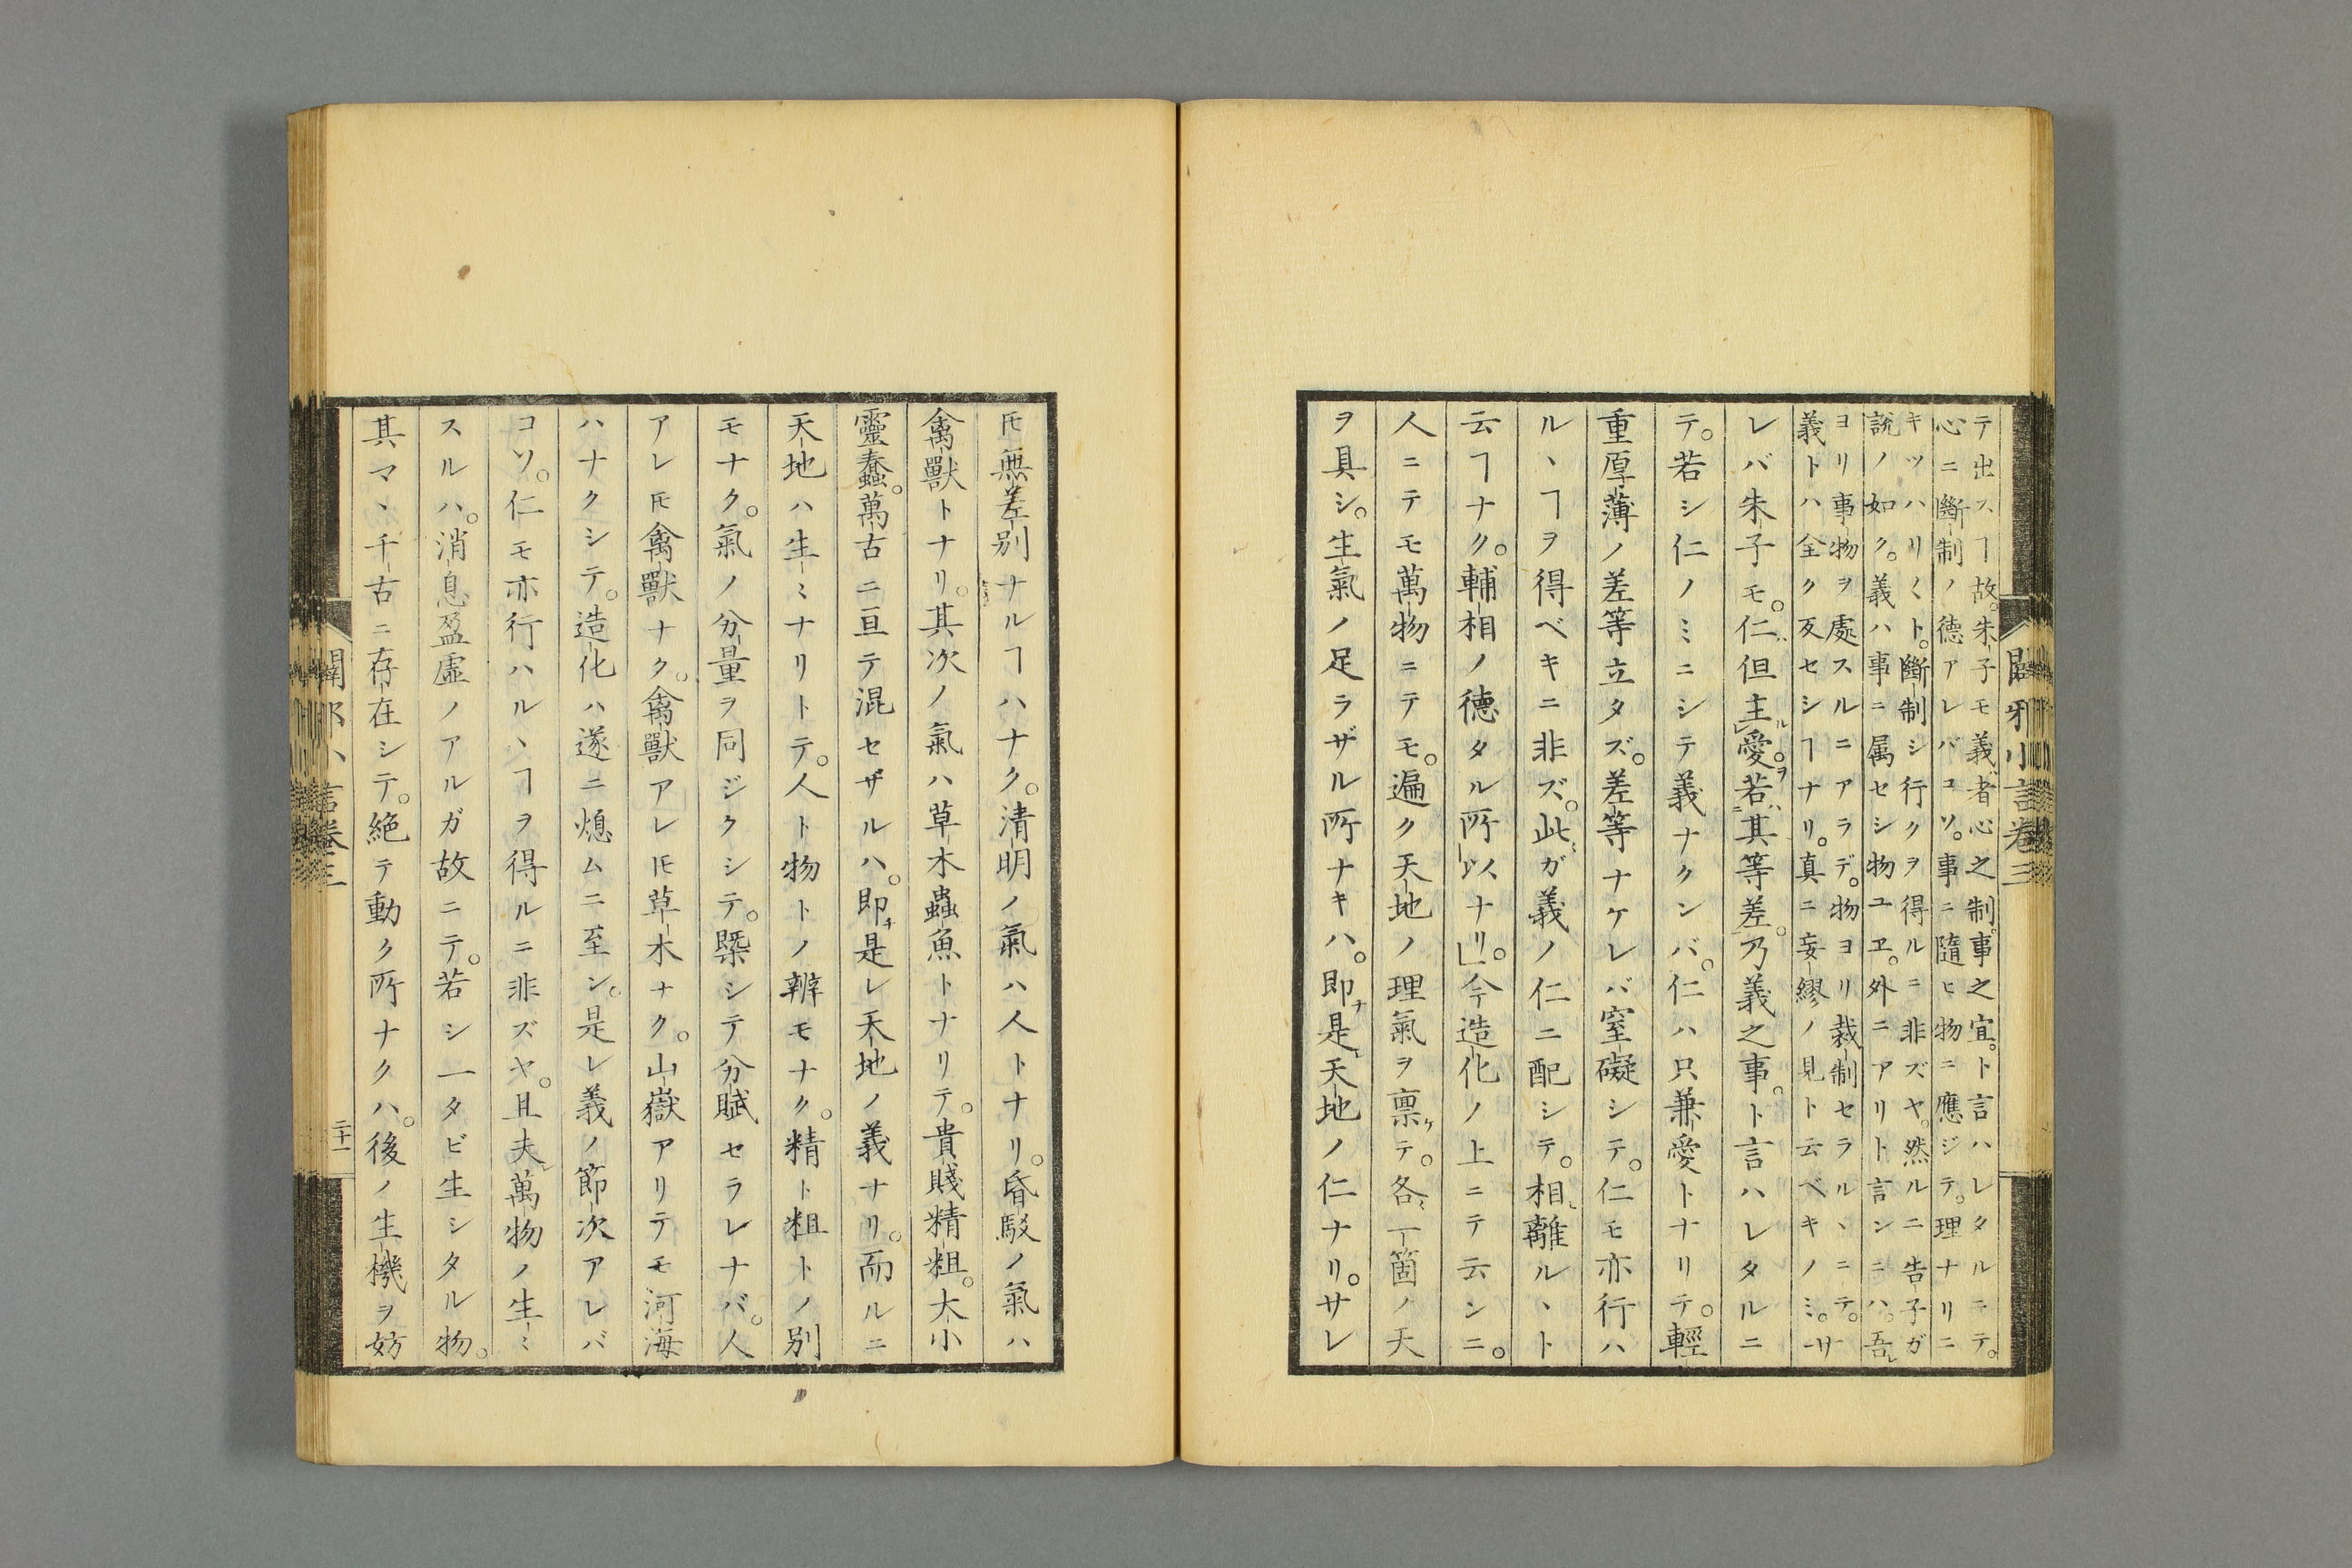 テ出スヿ故。朱子モ義者心之制。事之宜。ト言ハレタルニテ。
心ニ斷制ノ德アレバコソ。事ニ隨ヒ物ニ應ジテ。理ナリニ
キツハリ〱ト。斷制シ行クヲ得ルニ非ズヤ。然ルニ告子ガ
說ノ如ク。義ハ事ニ属セシ物ユヱ。外ニアリト言ンニハ。吾
ヨリ事物ヲ處スルニアラデ。物ヨリ裁制セラルヽニテ。
義トハ全ク反セシヿナリ。真ニ妄繆ノ見ト云ベキノミ。サ
レバ朱子モ。仁但主愛。若其等差。乃義之事。ト言ハレタルニ
テ。若シ仁ノミニシテ義ナクンバ。仁ハ只兼愛トナリテ。輕
重厚薄ノ差等立タズ。差等ナケレバ窒礙シテ。仁モ亦行ハ
ルヽヿヲ得ベキニ非ズ。此ガ義ノ仁ニ配シテ。相離ルヽト
云ヿナク。輔相ノ德タル所以ナリ。」今造化ノ上ニテ云ンニ。
人ニテモ萬物ニテモ。遍ク天地ノ理氣ヲ禀テ。各一箇ノ天
ヲ具シ。生氣ノ足ラザル所ナキハ。即是天地ノ仁ナリ。サレ
闢邪小言卷三
𪜈無差別ナルヿハナク。清明ノ氣ハ人トナリ。昏駁ノ氣ハ
禽獸トナリ。其次ノ氣ハ草木蟲魚トナリテ。貴賤精粗。大小
靈蠢。萬古ニ亘テ混セザルハ。即是レ天地ノ義ナリ。而ルニ
天地ハ生ミナリトテ。人ト物トノ辨モナク。精ト粗トノ別
モナク。氣ノ分量ヲ同ジクシテ。槩シテ分賦セラレナバ。人
アレ𪜈禽獸ナク。禽獸アレ𪜈草木ナク。山嶽アリテモ河海
ハナクシテ。造化ハ遂ニ熄ムニ至ン。是レ義ノ節次アレバ
コソ。仁モ亦行ハルヽヿヲ得ルニ非ズヤ。且夫萬物ノ生ミ
スルハ。消息盈虛ノアルガ故ニテ。若シ一タビ生シタル物。
其マヽ千古ニ存在シテ。絕テ動ク所ナクハ。後ノ生機ヲ妨
闢邪小言卷三
二十一